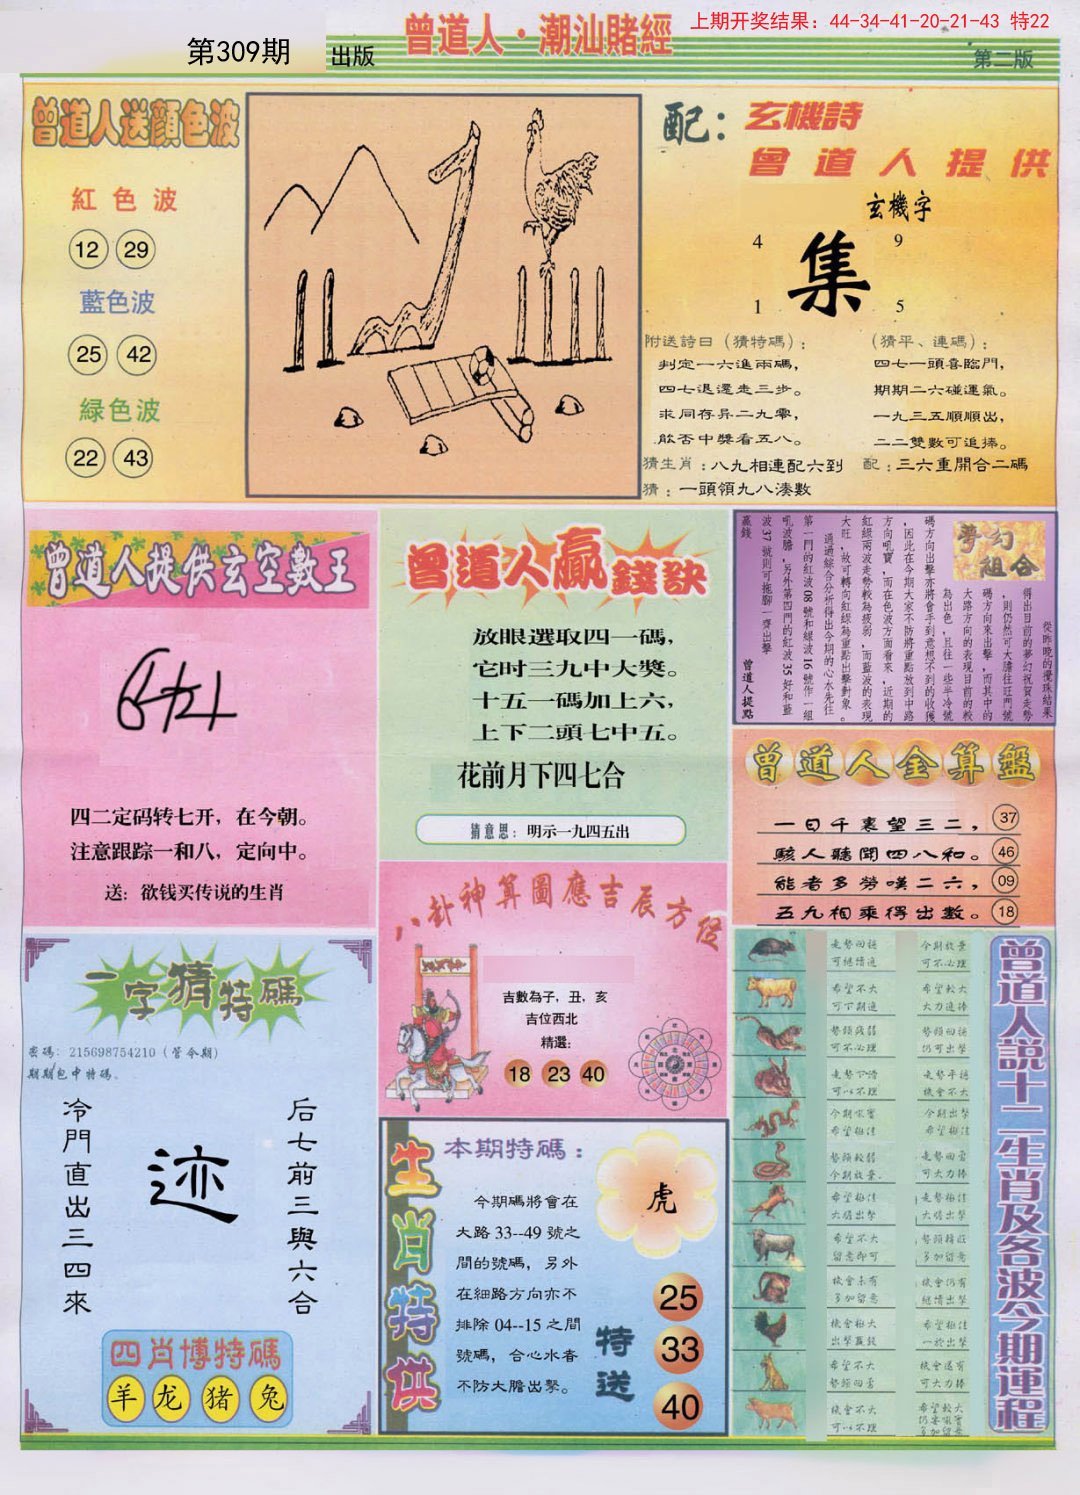 上期开奖结果：44-34-41-20-21-43 特22
第309期
出版
曾道人·潮汕賭經
第二版
曾道人送顏色波
紅色波
12 29
藍色波
25 42
緑色波
22 43
配：玄機詩
曾道人提供
玄機字
4 9
集
1 5
附送詩曰（猜特碼）：
判定一六進兩碼，
四七退還走三步。
求同存异二九零，
能否中獎看五八。
（猜平、連碼）：
四七一頭喜臨門，
期期二六碰運氣。
一九三五順順出，
二二雙數可追捧。
猜生肖：八九相連配六到
配：三六重開合二碼
猜：一頭領九八湊數
曾道人提供玄空數王
四二定码转七开，在今朝。
注意跟踪一和八，定向中。
送：欲钱买传说的生肖
曾道人贏錢訣
放眼選取四一碼，
它时三九中大獎。
十五一碼加上六，
上下二頭七中五。
花前月下四七合
猜意思：明示一九四五出
夢幻組合
從昨晚的攪珠結果
得出目前的夢幻祝賀走勢
，則仍然可大膽往旺門號
碼方向來出擊，而其中的
大路方向的表現目前的較
為出色，且往一些半冷號
碼方向出擊亦將會手到意想不到的收獲
，因此在今期大家不防將重點放到中路
方向吼寶，而在色波方面看來，近期的
紅綠兩波走勢較為疲弱，而藍波的表現
大旺，故可轉向紅綠為重點出擊對象。
通過綜合分析得出今期的心水先往
第一門的紅波08號和綠波16號作一組
吼波膽，另外第四門的紅波35好和藍
波37號則可拖腳一齊出擊
贏錢
曾道人提點
曾道人金算盤
一日千裏望三二， 37
駭人聽聞四八和。 46
能者多勞嘆二六， 09
五九相乘得出數。 18
八卦神算圖應吉辰方位
吉數為子，丑，亥
吉位西北
精選：
18 23 40
一字猜特碼
密碼：215698754210（管今期）
期期包中特碼、
冷門直出三四來
迹
后七前三與六合
四肖博特碼
羊 龙 猪 兔
生肖特供
本期特碼：
今期碼將會在
大路33--49號之
間的號碼，另外
在細路方向亦不
排除04--15之間
號碼，合心水者
不防大膽出擊。
虎
特送
25
33
40
曾道人說十二生肖及各波今期運程
走勢回穩
可繼續追
今期放棄
可不必理
希望不大
可下期追
希望較大
大力追捧
勢頭疲弱
可不必理
勢頭回穩
仍可出擊
走勢下滑
可以不理
走勢平穩
機會不大
今期吼實
希望極佳
今期出擊
希望極佳
勢頭較弱
今期放棄、
走勢回勇
可大力捧
希望極佳
大膽出擊
走勢極佳
大膽出擊
希望不大
留意即可
多加留意
機會未有
多加留意
機會仍有
繼續出擊
機會極大
出擊贏錢
希望極佳
一於出擊
希望不大
勢頭回勇
機會還有
可大力捧
機會不大
可以不理
希望較大
仍要吼實
多加留意